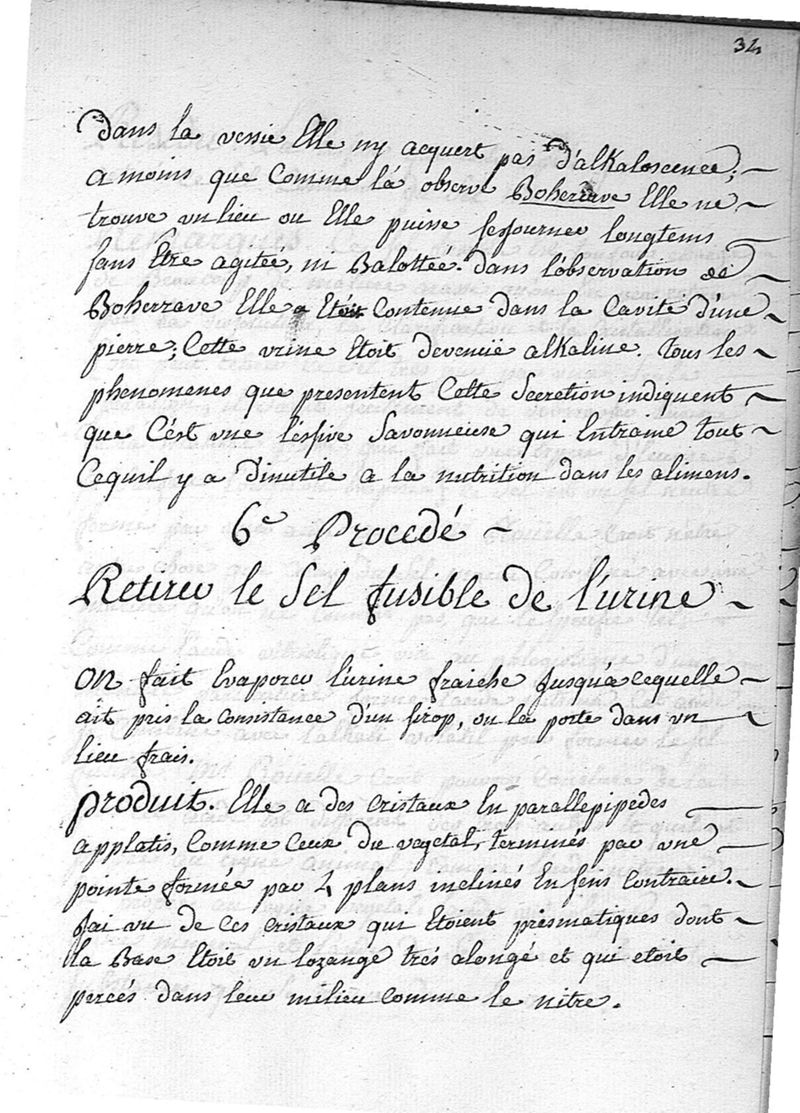 34
dans la vessie Elle ny acquert pas d'alkaloscence, ~
a moins que Comme la observé Boherrave Elle ne ~
trouve un lieu ou Elle puisse sesjourner longtems
sans Etre agitée, ni Balottée. dans l'observation de
Boherrave Elle Etoit Contenue dans la Cavité d'une ~
pierre; Cette urine Etoit devenüe alkaline. tous les ~
phenomenes que presentent Cette Secretion indiquent ~
que C'est une lessive Savonneuse qui Entraine tout ~
Cequil y a d'inutile a la nutrition dans les alimens.
6e Procedé ~
Retirer le Sel fusible de l'urine ~
on fait Evaporer l'urine fraiche jusqu'acequelle ~
ait pris la consistance d'un sirop, on la porte dans un
lieu frais.
produit. Elle a des cristaux En parallepipedes
applatis, Comme Ceux du vegetal, terminés par une
pointe formée par 4 plans inclinés En sens Contraire. ~
j'ai vu de ces cristaux qui Etoient prismatiques dont ~
la Base Etoit un lozange tres alongé et qui etoit
percés dans leur milieu comme le nitre.